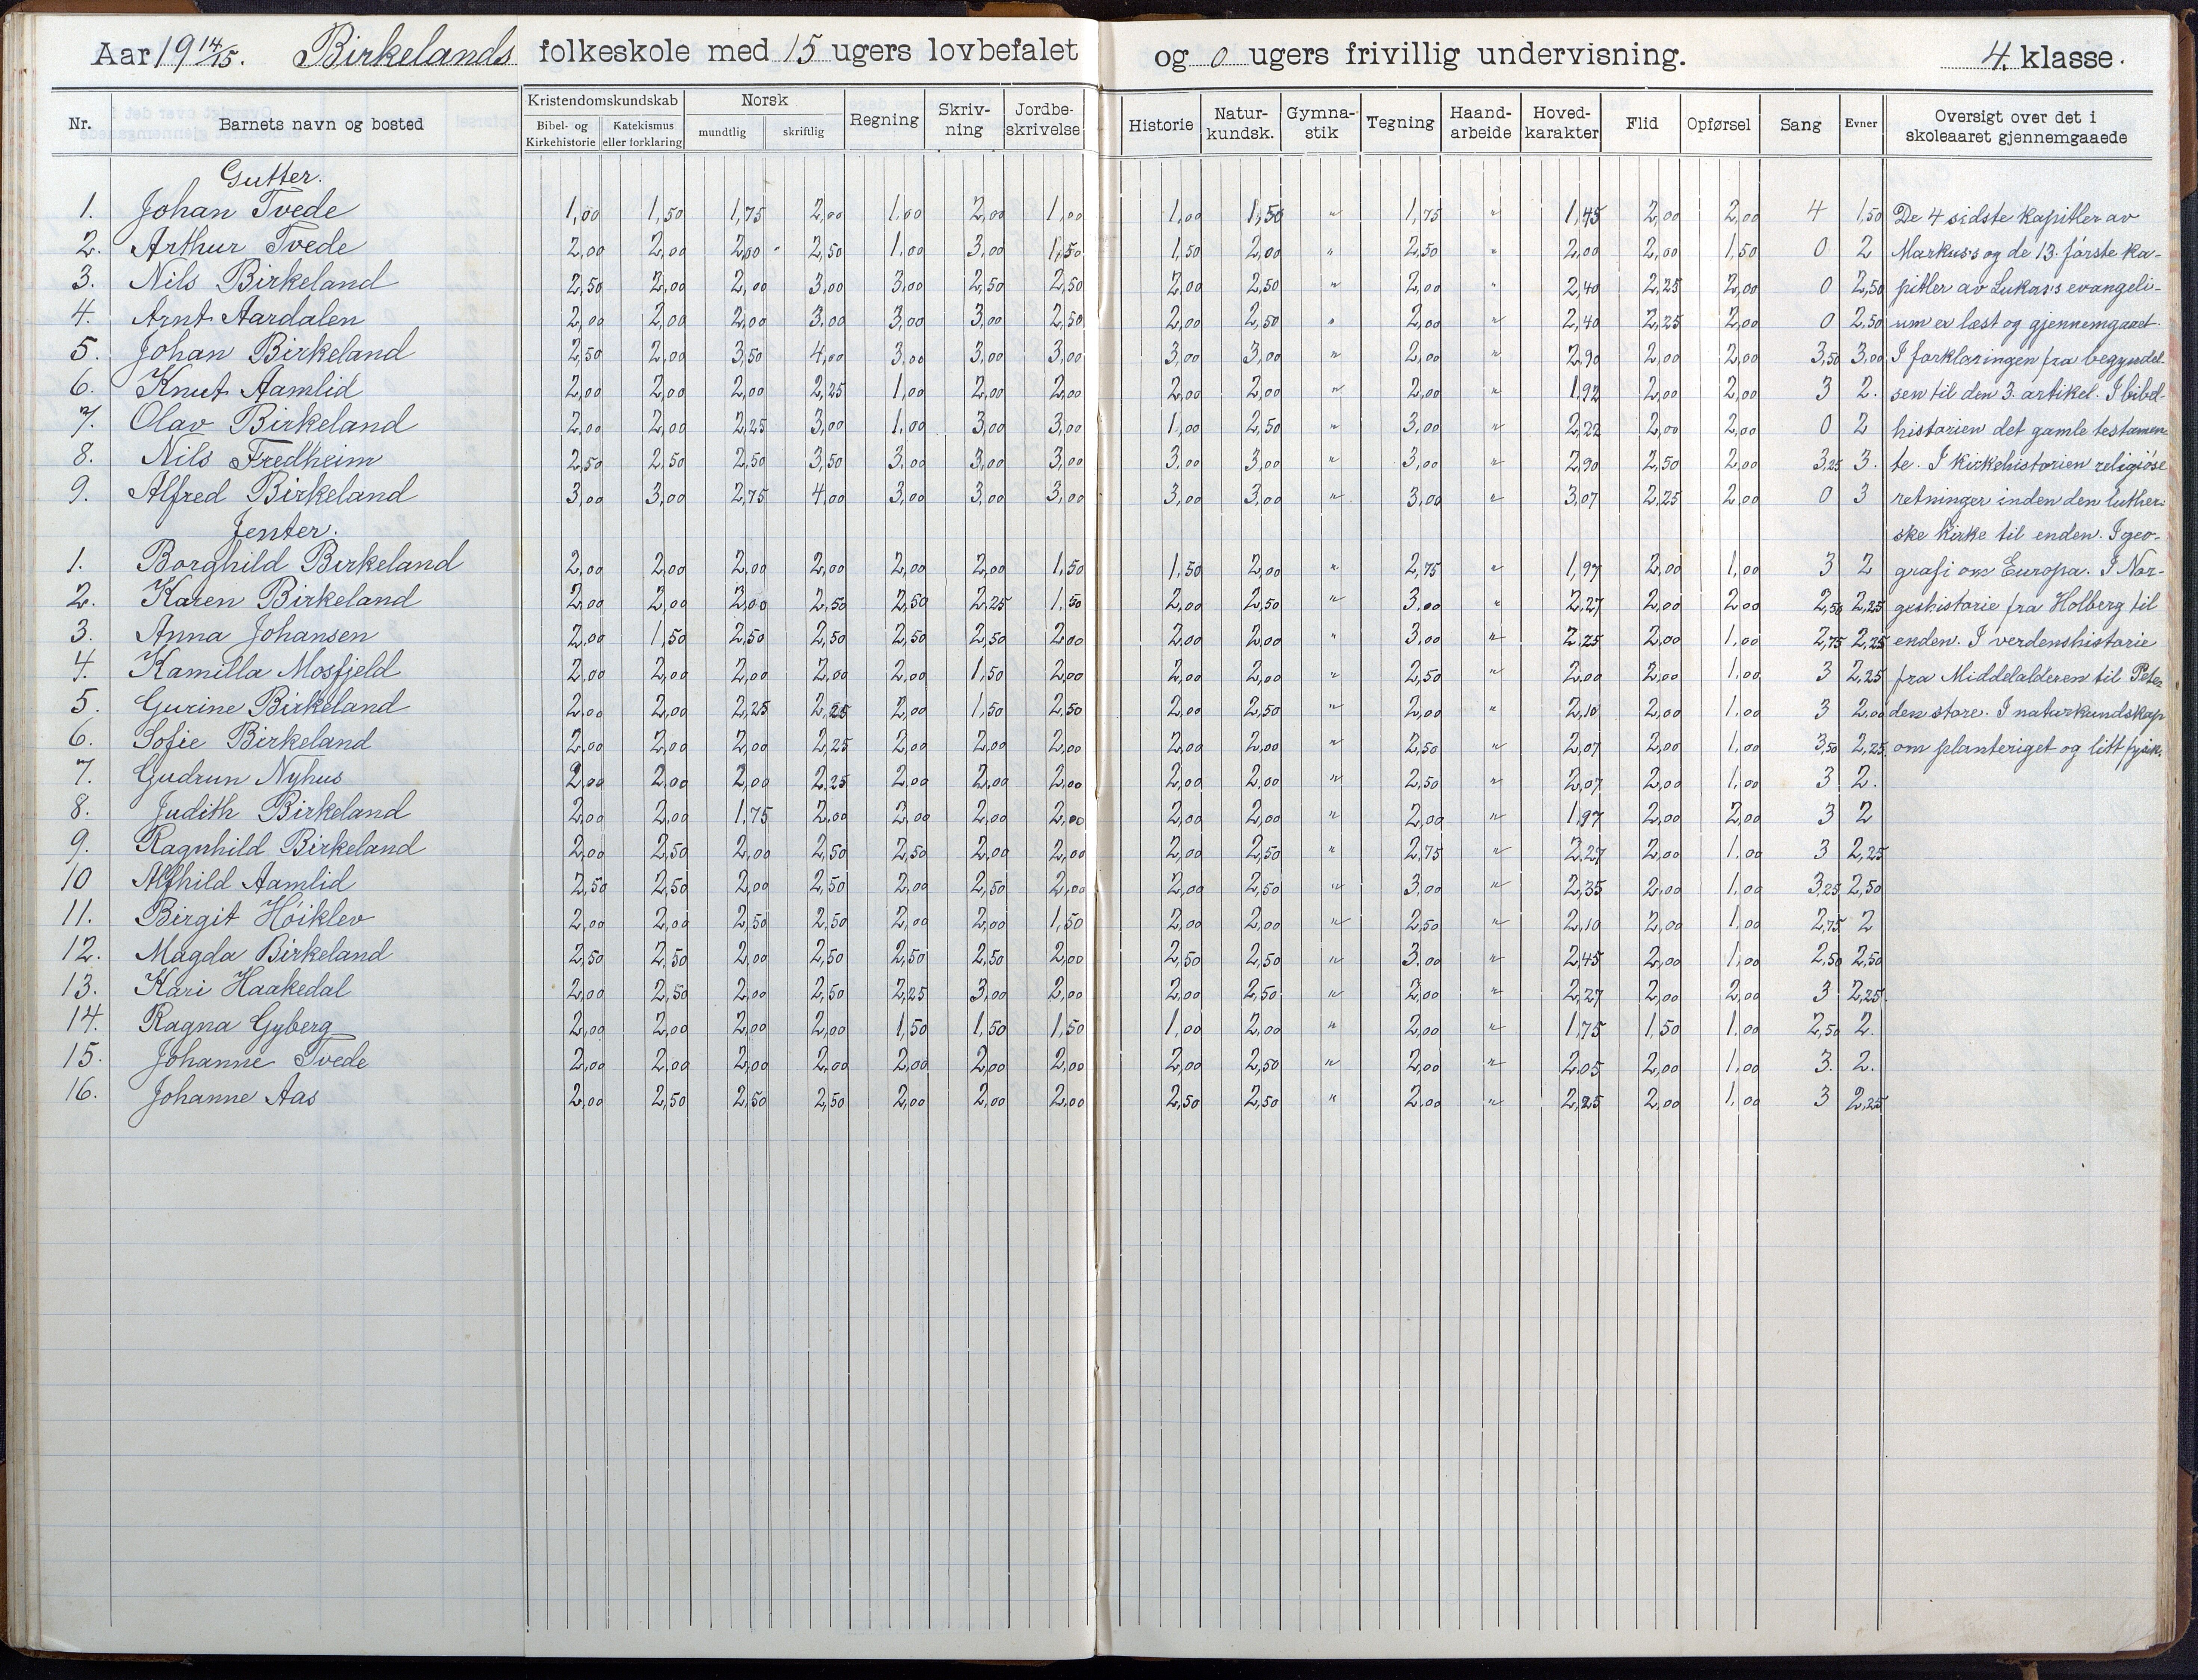 Aar 19 14/15. Birkelands folkeskole med 15 ugers lovbefalet og 0 ugers frivillig undervisning. 4. klasse.
Nr. | Barnets navn og bosted | Kristendomskundskab: Bibel- og Kirkehistorie | Katekismus eller forklaring | Norsk: mundtlig | skriftlig | Regning | Skriv-ning | Jordbe-skrivelse | Historie | Natur-kundsk. | Gymna-stik | Tegning | Haand-arbeide | Hoved-karakter | Flid | Opførsel | Sang | Evner | Oversigt over det i skoleaaret gjennemgaaede
Gutter.
1. Johan Tvede 1,00 1,50 1,75 2,00 1,00 2,00 1,00 1,00 1,50 " 1,75 " 1,45 2,00 2,00 4 1,50 De 4 sidste kapitler av
2. Arthur Tvede 2,00 2,00 2,00 2,50 1,00 3,00 1,50 1,50 2,00 " 2,50 " 2,00 2,00 1,50 0 2 Markus's og de 13. første ka-
3. Nils Birkeland 2,50 2,00 2,00 3,00 3,00 2,50 2,50 2,00 2,50 " 2,00 " 2,40 2,25 2,00 0 2,50 pitler av Lukas's evangeli-
4. Arnt Aardalen 2,00 2,00 2,00 3,00 3,00 3,00 2,50 2,00 2,50 " 2,00 " 2,40 2,25 2,00 0 2,50 um er læst og gjennemgaaet.
5. Johan Birkeland 2,50 2,00 3,50 4,00 3,00 3,00 3,00 3,00 3,00 " 2,00 " 2,90 2,00 2,00 3,50 3,00 I forklaringen fra begyndel-
6. Knut Aamlid 2,00 2,00 2,00 2,25 1,00 2,00 2,00 2,00 2,00 " 2,00 " 1,92 2,00 2,00 3 2. sen til den 3. artikel. I bibel-
7. Olav Birkeland 2,00 2,00 2,25 3,00 1,00 3,00 3,00 1,00 2,50 " 3,00 " 2,22 2,00 2,00 0 2 historien det gamle testamen-
8. Nils Fredheim 2,50 2,50 2,50 3,50 3,00 3,00 3,00 3,00 3,00 " 3,00 " 2,90 2,50 2,00 3,25 3. te. I kirkehistorien religiøse
9. Alfred Birkeland 3,00 3,00 2,75 4,00 3,00 3,00 3,00 3,00 3,00 " 3,00 " 3,07 2,25 2,00 0 3 retninger inden den luther-
Jenter. ske kirke til enden. I geo-
1. Borghild Birkeland 2,00 2,00 2,00 2,00 2,00 2,00 1,50 1,50 2,00 " 2,75 " 1,97 2,00 1,00 3 2 grafi om Europa. I Nor-
2. Karen Birkeland 2,00 2,00 2,00 2,50 2,50 2,25 1,50 2,00 2,50 " 3,00 " 2,27 2,00 2,00 2,50 2,25 geshistorie fra Holberg til
3. Anna Johansen 2,00 1,50 2,50 2,50 2,50 2,50 2,00 2,00 2,00 " 3,00 " 2,25 2,00 1,00 2,75 2,25 enden. I verdenshistorie
4. Kamilla Mosfjeld 2,00 2,00 2,00 2,00 2,00 1,50 2,00 2,00 2,00 " 2,50 " 2,00 2,00 1,00 3 2,25 fra Middelalderen til Peter
5. Gurine Birkeland 2,00 2,00 2,25 2,25 2,00 1,50 2,50 2,00 2,50 " 2,00 " 2,10 2,00 1,00 3 2,00 den store. I naturkundskap
6. Sofie Birkeland 2,00 2,00 2,00 2,25 2,00 2,00 2,00 2,00 2,00 " 2,50 " 2,07 2,00 1,00 3,50 2,25 om planteriget og litt fysik.
7. Gudrun Nyhus 2,00 2,00 2,00 2,25 2,00 2,00 2,00 2,00 2,00 " 2,50 " 2,07 2,00 1,00 3 2.
8. Judith Birkeland 2,00 2,00 1,75 2,00 2,00 2,00 2,00 2,00 2,00 " 2,00 " 1,97 2,00 2,00 3 2
9. Ragnhild Birkeland 2,00 2,50 2,00 2,50 2,50 2,00 2,00 2,00 2,50 " 2,75 " 2,27 2,00 1,00 3 2,25
10 Alfhild Aamlid 2,50 2,50 2,00 2,50 2,00 2,50 2,00 2,00 2,50 " 3,00 " 2,35 2,00 1,00 3,25 2,50
11. Birgit Höiklev 2,00 2,00 2,50 2,50 2,00 2,00 1,50 2,00 2,00 " 2,50 " 2,10 2,00 1,00 2,75 2
12. Magda Birkeland 2,50 2,50 2,00 2,50 2,50 2,50 2,00 2,50 2,50 " 3,00 " 2,45 2,00 1,00 2,50 2,50
13. Kari Haakedal 2,00 2,50 2,00 2,50 2,25 3,00 2,00 2,00 2,50 " 2,00 " 2,27 2,00 2,00 3 2,25
14. Ragna Gyberg 2,00 2,00 2,00 2,00 1,50 1,50 1,50 1,00 2,00 " 2,00 " 1,75 1,50 1,00 2,50 2.
15. Johanne Tvede 2,00 2,00 2,00 2,00 2,00 2,00 2,00 2,00 2,50 " 2,00 " 2,05 2,00 1,00 3. 2.
16. Johanne Aas 2,00 2,50 2,50 2,50 2,00 2,00 2,00 2,50 2,50 " 2,00 " 2,25 2,00 1,00 3 2,25